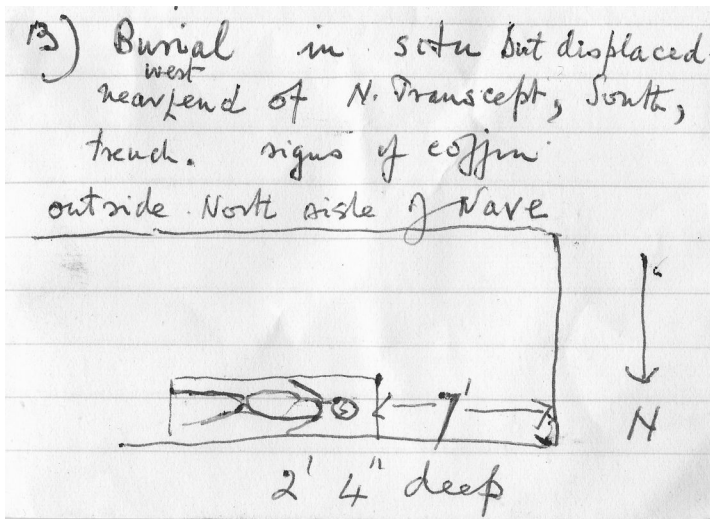 13) Burial in situ but displaced
west
near end of N. Transcept, South,
trench. signs of coffin
outside North aisle of Nave
7'
N
2' 4" deep